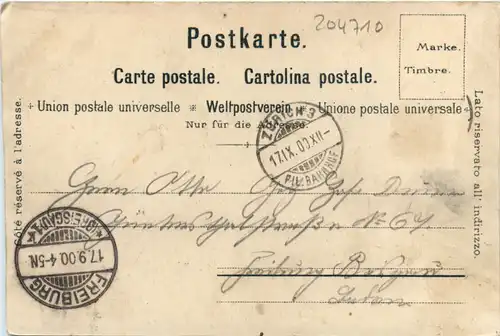 204710
Postkarte.
Marke.
Timbre.
Carte postale. Cartolina postale.
Union postale universelle * Weltpostverein * Unione postale universale
Nur für die Adresse.
Côté réservé à l'adresse.
Lato riservato all' indirizzo.
ZÜRICH 3
17.IX.00.XII-
FIL. BAHNHOF
Herrn Otto
Günterstalstrasse No 64
Freiburg Breisgau
Baden
FREIBURG
17.9.00.4-5N.
(BREISGAU)